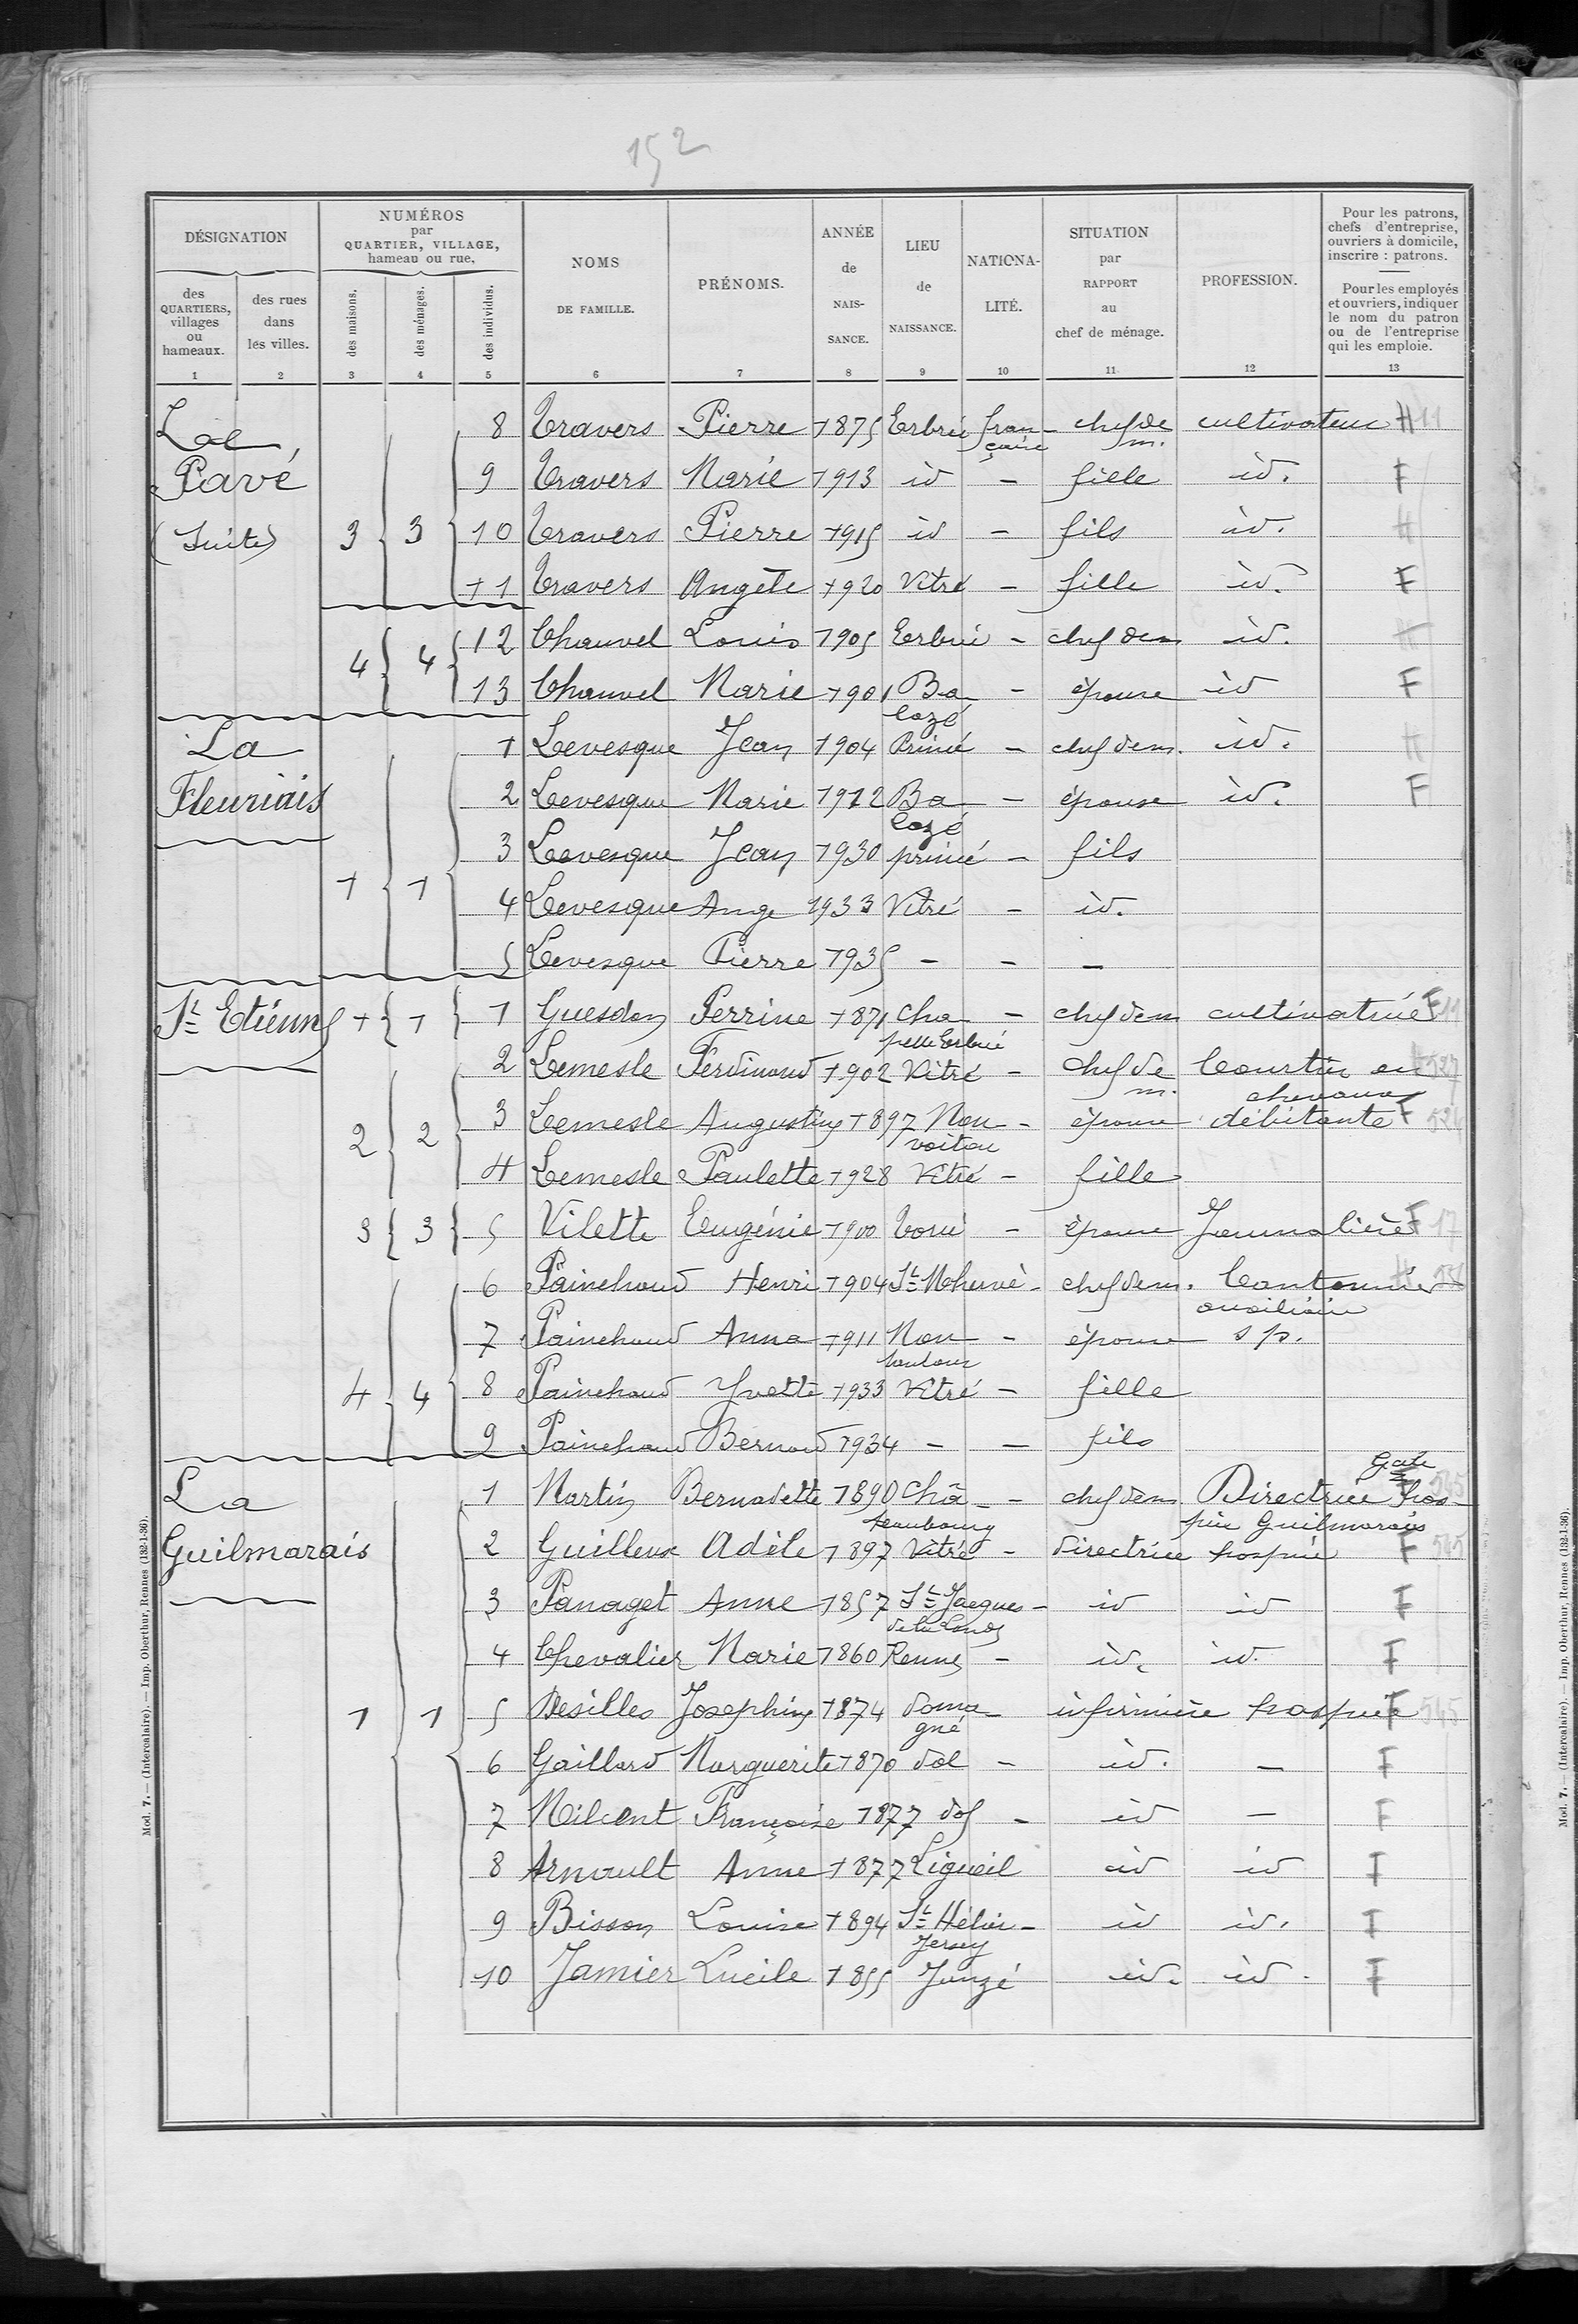 152
DÉSIGNATION
NUMÉROS
par
QUARTIER, VILLAGE,
hameau ou rue.
NOMS
DE FAMILLE.
PRÉNOMS.
ANNÉE
de
NAIS-
SANCE.
LIEU
de
NAISSANCE.
NATIONA-
LITÉ.
SITUATION
par
RAPPORT
au
chef de ménage.
PROFESSION.
Pour les patrons,
chefs d'entreprise,
ouvriers à domicile,
inscrire : patrons.
Pour les employés
et ouvriers, indiquer
le nom du patron
ou de l'entreprise
qui les emploie.
des
QUARTIERS,
villages
ou
hameaux.
des rues
dans
les villes.
des maisons.
des ménages.
des individus.
1 2 3 4 5 6 7 8 9 10 11 12 13
8 Travers Pierre 1875 Erbrée fran- chef de cultivateur H 11
çaise m.
Pavé 9 Travers Marie 1913 id - fille id. F
(Suite) 3 3 10 Travers Pierre 1915 id - fils id. H
11 Travers Angèle 1920 Vitré - fille id. F
4 4 12 Chauvel Louis 1905 Erbrée - chef dem id. H
13 Chauvel Marie 1901 Ba - épouse id F
lazé
La 1 Levesque Jean 1904 Princé - chef dem. id. H
Fleuriais 2 Levesque Marie 1912 Ba - épouse id. F
lazé
3 Levesque Jean 1930 princé - fils
1 1 4 Levesque Ange 1933 Vitré - id.
5 Levesque Pierre 1935 - - -
St Etienne 1 1 1 Guesdon Perrine 1871 Cha - chef dem cultivatrice F 11
pelle Erbrée
2 Lemesle Ferdinand 1902 Vitré - chef de Courtier en 527
m. chevaux
2 2 3 Lemesle Augustine 1897 Nou - épouse débitante F
voitou
4 Lemesle Paulette 1928 Vitré - fille
3 3 5 Vilette Eugénie 1900 Torcé - épouse Journalière F 17
6 Painchaud Henri 1904 St Mhervé - chef dem. Cantonnier
auxiliaire
7 Painchaud Anna 1911 Mon - épouse s p.
tautour
4 4 8 Painchaud Yvette 1933 Vitré - fille
9 Painchaud Bernard 1934 - - fils
La 1 Martin Bernadette 1890 Châ - - chef dem Directrice hos- 545
teaubourg pice Guilmarais
Guilmarais 2 Guilleux Adèle 1897 Vitré - directrice hospice F 545
3 Panaget Anne 1857 St Jacques - id id F
de la Lande
4 Chevalier Marie 1860 Rennes - id. id. F
1 1 5 Desilles Josephine 1874 doma infirmière hospice F 545
gné
6 Gaillard Marguerite 1870 dol - id. - F
7 Milcent Françoise 1877 dol - id - F
8 Arnault Anne 1877 Ligueil id id F
9 Bisson Louise 1894 St Hélier - id id. F
Jersey
10 Jamier Lucile 1855 Janzé id. id. F
Mod. 7. — (Intercalaire). — Imp. Oberthur, Rennes (132-1-36).
Mod. 7. — (Intercalaire). — Imp. Oberthur, Rennes (132-1-36).